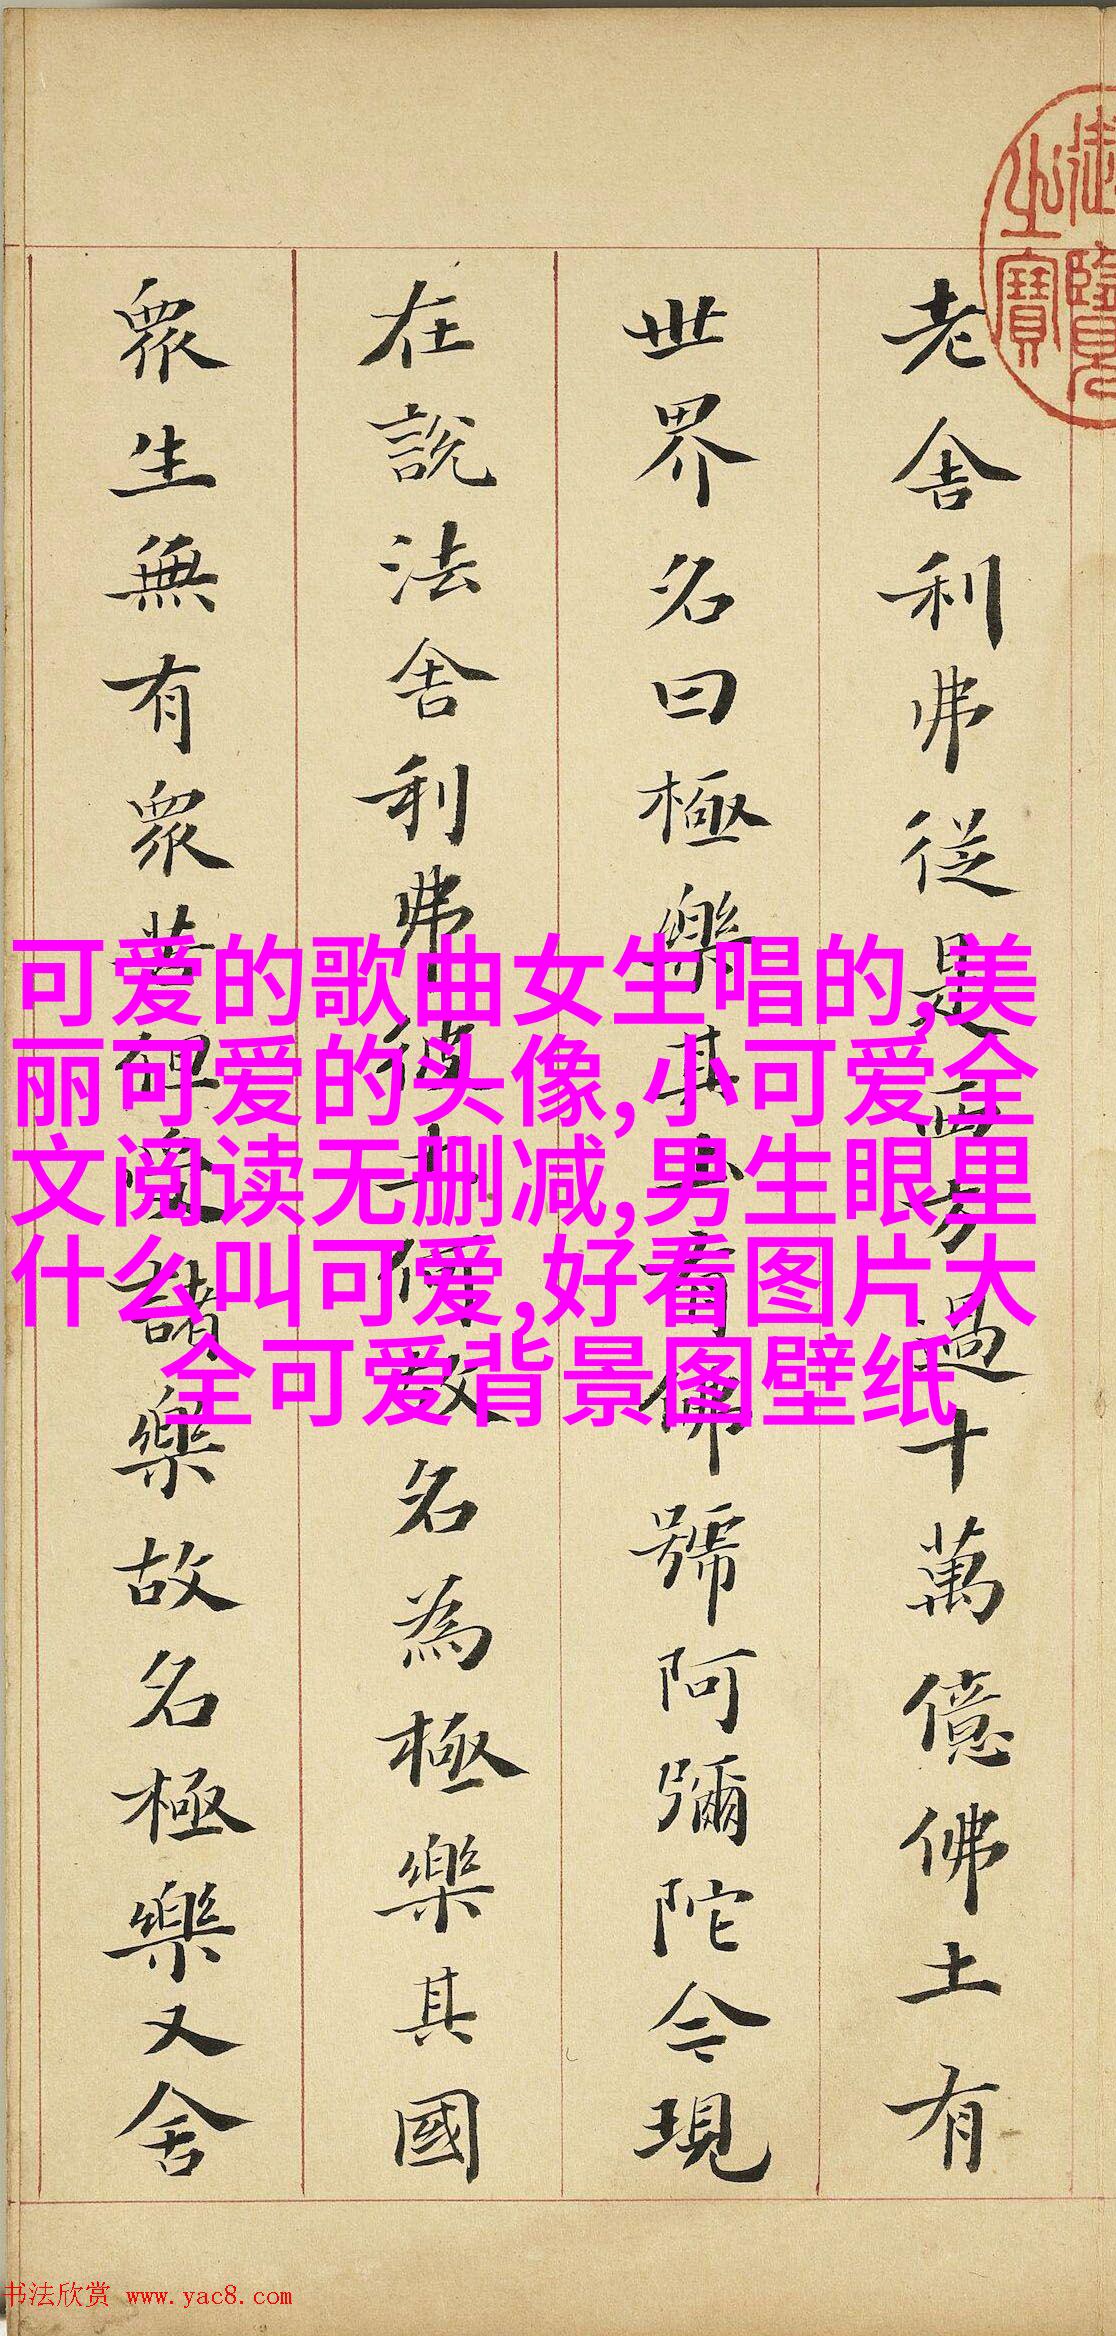 御覽之寶
老舍利弗從是西方過十萬億佛土有
世界名曰極樂其土有佛號阿彌陀今現
在說法舍利弗彼土何故名為極樂其國
眾生無有眾苦但受諸樂故名極樂又舍
可爱的歌曲女生唱的,美
丽可爱的头像,小可爱全
文阅读无删减,男生眼里
什么叫可爱,好看图片大
全可爱背景图壁纸
书法欣赏 www.yac8.com